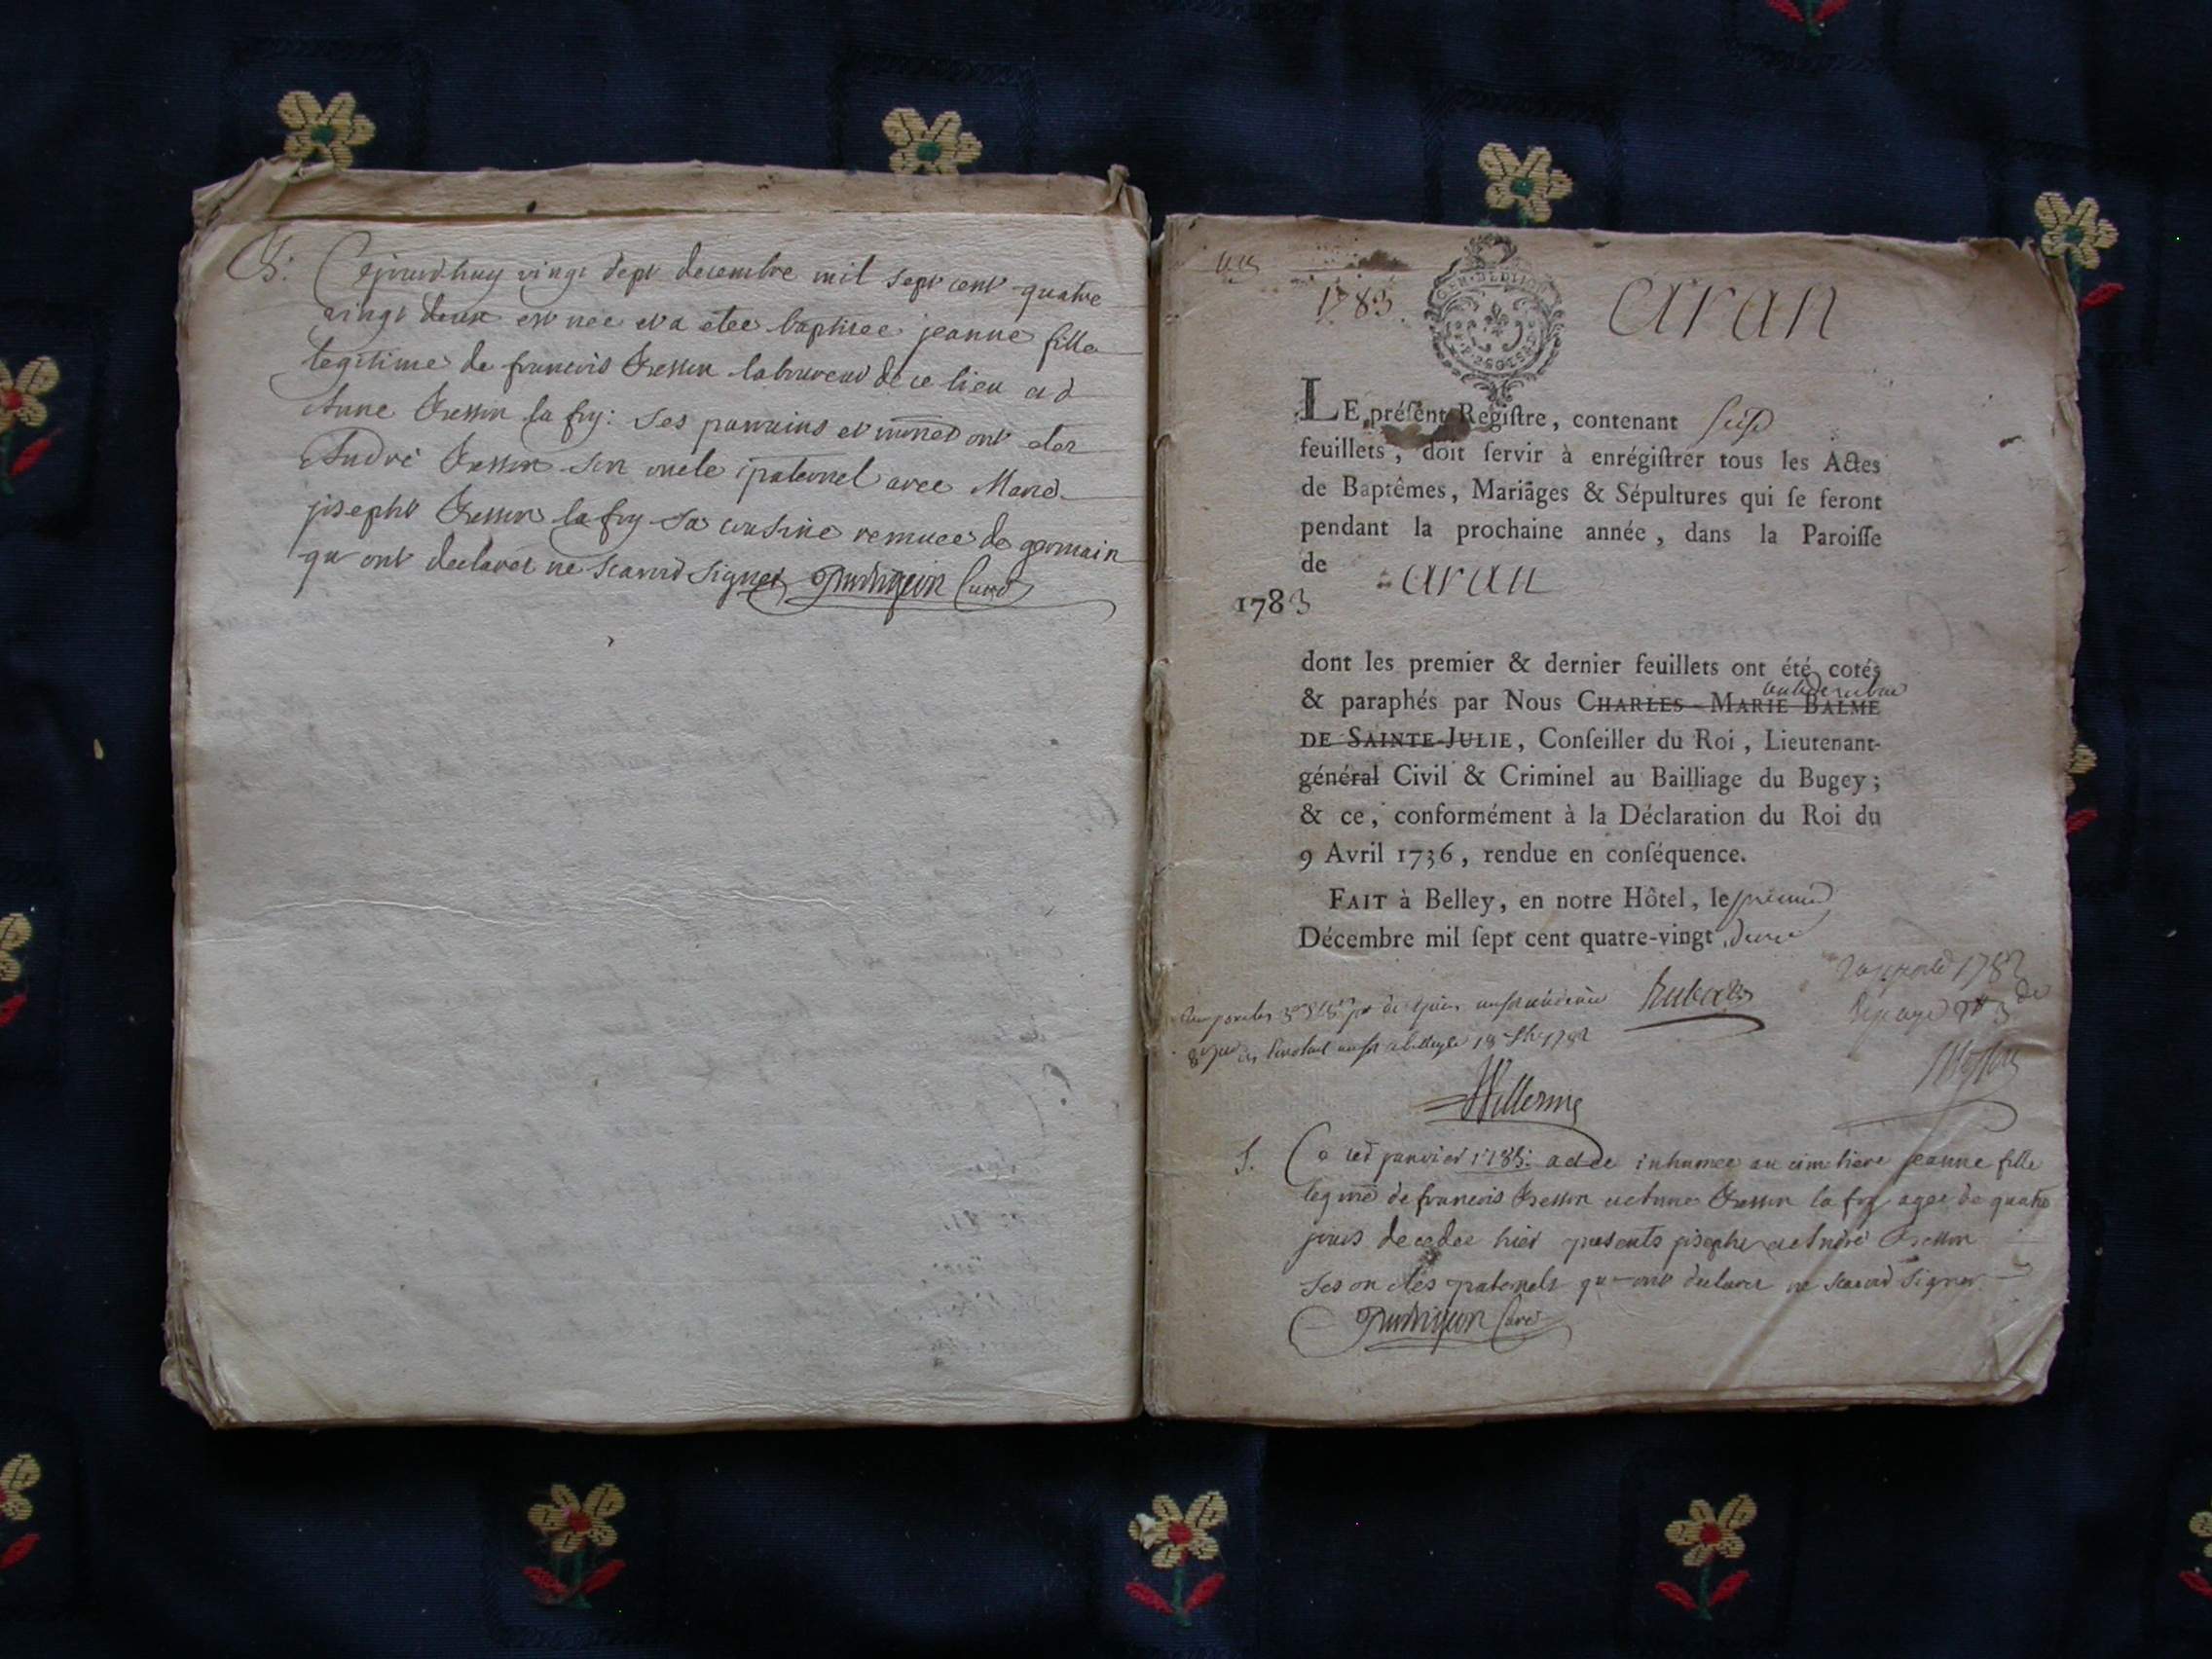 B. Cejourdhuy vingt sept decembre mil sept cent quatre
vingt deux est née et a etee baptisee jeanne fille
legitime de francois Bessin laboureur de ce lieu et d
Anne Bessin la foy: ses parrains et ont
André Bessin son oncle paternel avec Marie
josephe Bessin la foy sa cousine remuee de germain
qu ont declarer ne scavoir signer Curé
1783. aran
GEN. DE DIJON
LE préſent Regiſtre, contenant
feuillets, doit ſervir à enrégiſtrer tous les Actes
de Baptêmes, Mariâges & Sépultures qui ſe feront
pendant la prochaine année, dans la Paroiſſe
de aran
1783
dont les premier & dernier feuillets ont été cotés
& paraphés par Nous CHARLES-MARIE BALME
DE SAINTE-JULIE, Conſeiller du Roi, Lieutenant-
général Civil & Criminel au Bailliage du Bugey;
& ce, conformément à la Déclaration du Roi du
9 Avril 1736, rendue en conſéquence.
FAIT à Belley, en notre Hôtel, le premier
Décembre mil ſept cent quatre-vingt deux
1782
Willerme
S. Ce janvier 1783. a ete inhumee au cimetiere jeanne fille
de francois Bessin et Anne Bessin la foy agee de quatre
jours decedee hier presents josephe et André Bessin
ses oncles paternels qu ont declarer ne scavoir signer
Curé